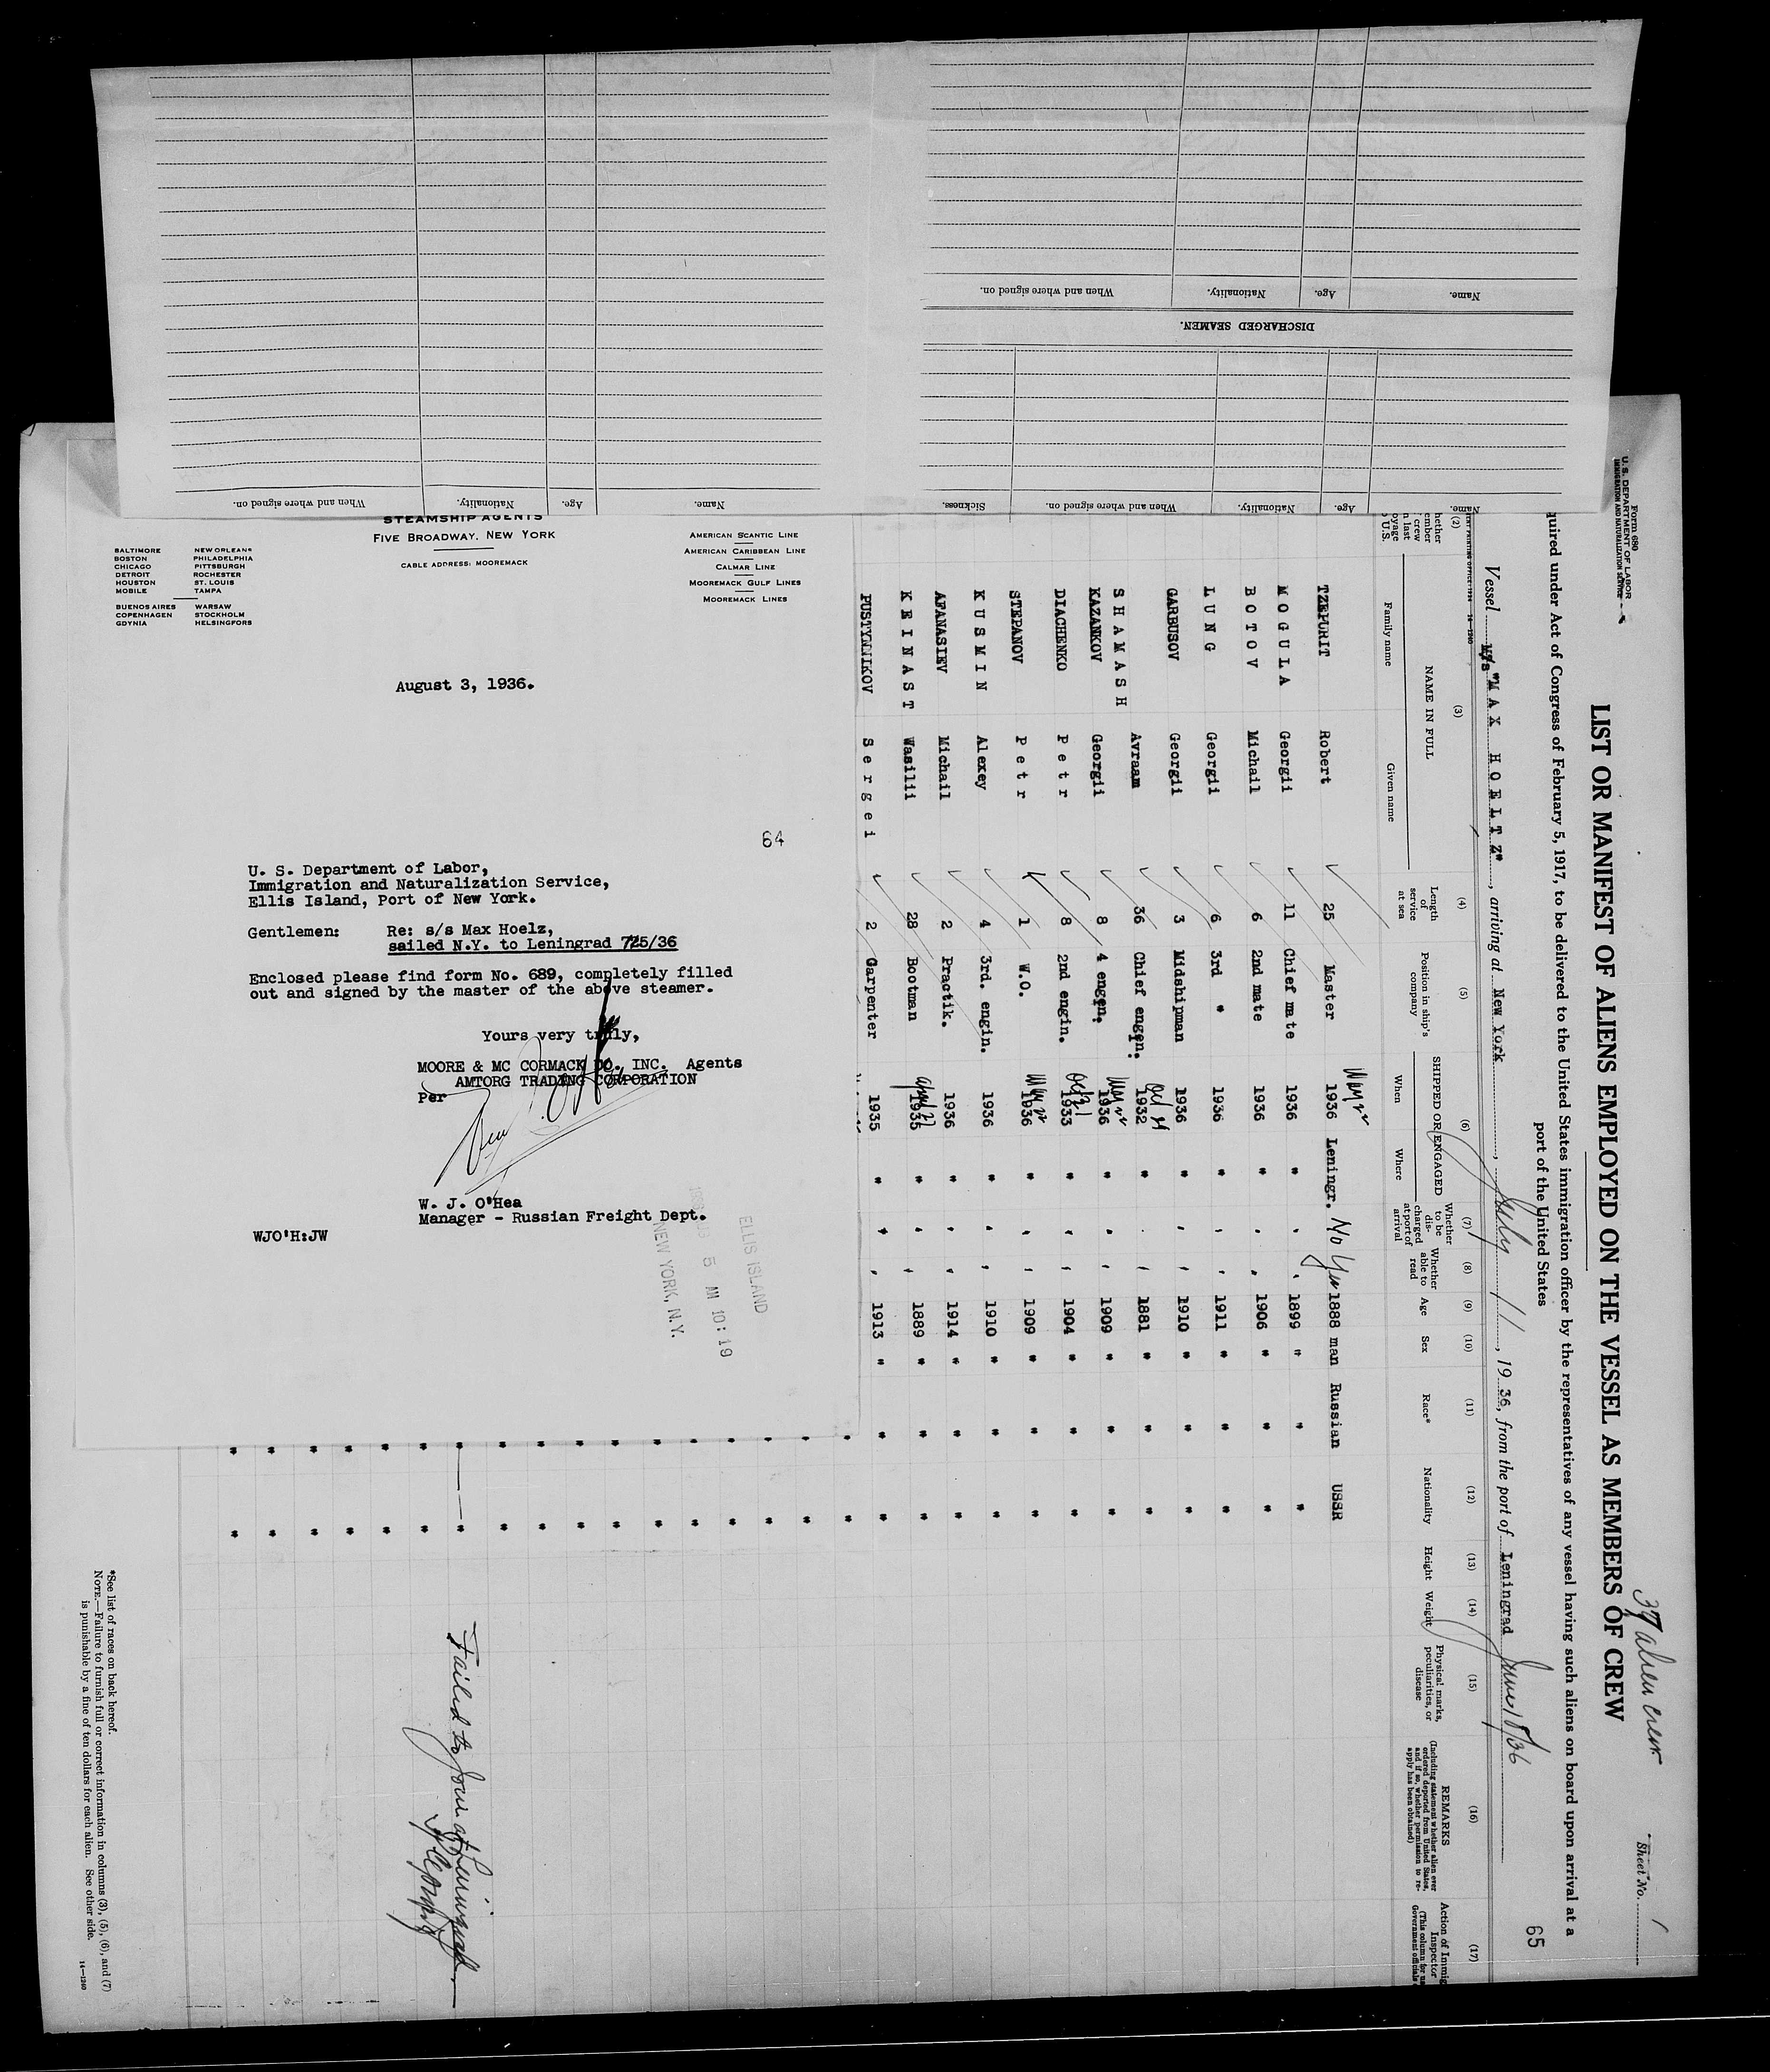 Name.
Age.
Nationality.
When and where signed on.
DISCHARGED SEAMEN.
Name.
Age.
Nationality.
When and where signed on.
Sickness.
Age.
When and where signed on.
Nationality.
Name.
STEAMSHIP AGENTS
FIVE BROADWAY, NEW YORK
CABLE ADDRESS: MOOREMACK
BALTIMORE NEW ORLEANS
BOSTON PHILADELPHIA
CHICAGO PITTSBURGH
DETROIT ROCHESTER
HOUSTON ST. LOUIS
MOBILE TAMPA
BUENOS AIRES WARSAW
COPENHAGEN STOCKHOLM
GDYNIA HELSINGFORS
AMERICAN SCANTIC LINE
AMERICAN CARIBBEAN LINE
CALMAR LINE
MOOREMACK GULF LINES
MOOREMACK LINES
August 3, 1936.
64
U. S. Department of Labor,
Immigration and Naturalization Service,
Ellis Island, Port of New York.
Gentlemen: Re: s/s Max Hoelz,
sailed N.Y. to Leningrad 725/36
Enclosed please find form No. 689, completely filled
out and signed by the master of the above steamer.
Yours very truly,
MOORE & MC CORMACK CO., INC. Agents
AMTORG TRADING CORPORATION
Per
W. J. O'Hea
Manager - Russian Freight Dept.
WJO'H:JW
ELLIS ISLAND
5 AM 10:19
NEW YORK, N.Y.
Form 680
U. S. DEPARTMENT OF LABOR
IMMIGRATION AND NATURALIZATION SERVICE
37 alien crew
Sheet No. 1
LIST OR MANIFEST OF ALIENS EMPLOYED ON THE VESSEL AS MEMBERS OF CREW
quired under Act of Congress of February 5, 1917, to be delivered to the United States immigration officer by the representatives of any vessel having such aliens on board upon arrival at a
port of the United States
65
Vessel M/s "MAX HOELTZ", arriving at New York, July 11, 1936, from the port of Leningrad June 18/36
(2) (3) (4) (5) (6) (7) (8) (9) (10) (11) (12) (13) (14) (15) (16) (17)
NAME IN FULL
Family name Given name
Length of service at sea
Position in ship's company
SHIPPED OR ENGAGED
When Where
Whether to be discharged at port of arrival
Whether able to read
Age
Sex
Race*
Nationality
Height
Weight
Physical marks, peculiarities, or disease
REMARKS
(Including statement whether alien ever ordered deported from United States, and if so, whether permission to reapply has been obtained)
Action of Immig
Inspector
TZEPURIT Robert 25 Master 1936 Leningr. No Yes 1888 man Russian USSR
MOGULA Georgii 11 Chief mate 1936 " " " 1899 " " "
BOTOV Michail 6 2nd mate 1936 " " " 1906 " " "
LUNG Georgii 6 3rd " 1936 " " " 1911 " " "
GARBUSOV Georgii 3 Midshipman 1936 " " " 1910 " " "
SHAMASH Avraam 36 Chief engen. 1932 " " " 1881 " " "
KAZANKOV Georgii 8 4 engen. 1936 " " " 1909 " " "
DIACHENKO Petr 8 2nd engin. 1933 " " " 1904 " " "
STEPANOV Petr 1 W.O. 1936 " " " 1909 " " "
KUSMIN Alexey 4 3rd. engin. 1936 " " " 1910 " " "
AFANASIEV Michail 2 Practik. 1936 " " " 1914 " " "
KEINAST Wasilii 28 Bootman 1935 " " " 1889 " " "
PUSTYNNIKOV Sergei 2 Garpenter 1935 " " " 1913 " " "
Failed to join at Leningrad
*See list of races on back hereof.
NOTE.—Failure to furnish full or correct information in columns (3), (5), (6), and (7)
is punishable by a fine of ten dollars for each alien. See other side.
14—1240